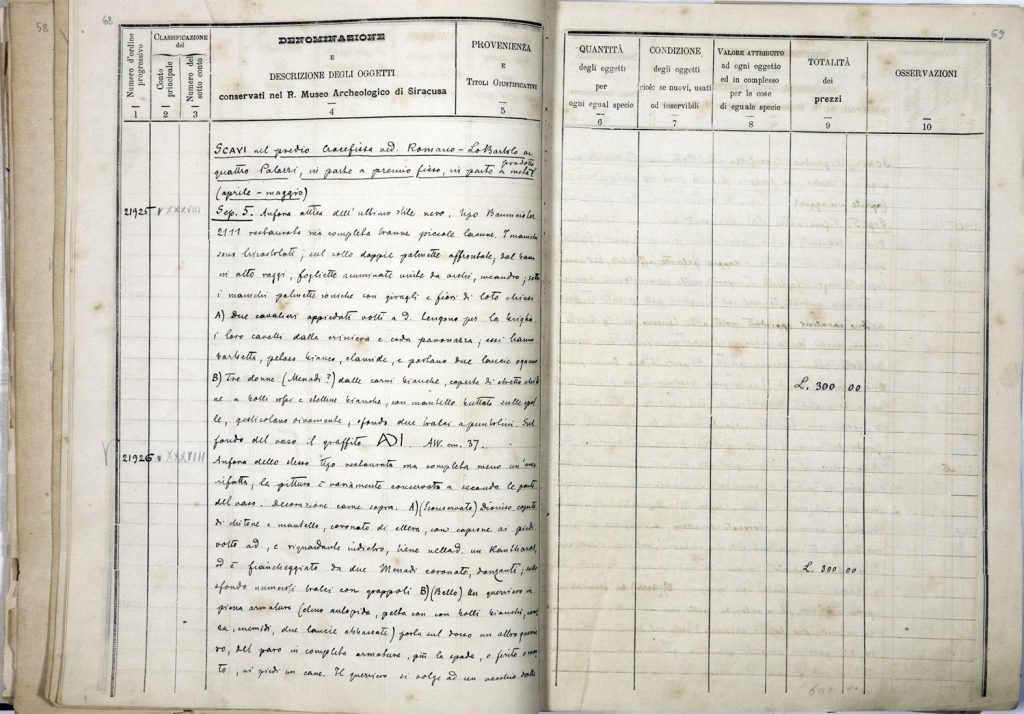 58
68
Numero d'ordine progressivo
1
CLASSIFICAZIONE
del
Conto principale
2
Numero del sotto conto
3
DENOMINAZIONE
E
DESCRIZIONE DEGLI OGGETTI
conservati nel R. Museo Archeologico di Siracusa
4
PROVENIENZA
E
TITOLI GIUSTIFICATIVI
5
SCAVI nel predio Crocefissa ed. Romano - Lo Bartolo ai
quattro Palazzi, in parte a premio fisso, in parte a metà prodotto
(aprile - maggio)
21925 XXXXVIII Sep. 5. Anfora attica dell'ultimo stile nero, tipo Baumeister
2111 restaurata ma completa tranne piccole lacune. I manichi
sono tricostolati; sul collo doppie palmette affrontate, dal
in alto raggi, fogliette acuminate unite da archi, meandro; sotto
i manichi palmette ioniche con giragli e fiori di loto chiusi
A) Due cavalieri appiedati volti a d. tengono per la briglia
i loro cavalli dalla criniera e coda pavonazza; essi hanno
barbetta, petaso bianco, clamide, e portano due lancie ognuno
B) tre donne (Menadi?) dalle carni bianche, coperte di stretto chito
ne a bolli rossi e stelline bianche, con mantello buttato sulle spal
le, gesticolano vivamente, sfondo due tralci a puntolini. Sul
fondo del vaso il graffito ADI. Alt. cm. 37.
21926 XXXXVIII Anfora dello stesso tipo restaurata ma completa meno un'ansa
rifatta, la pittura è variamente conservata a seconda le parti
del vaso. Decorazione come sopra. A) (Sconservato) Dioniso coperto
di chitone e mantello, coronato di ellera, con caprone ai piedi
volto a d., e riguardante indietro, tiene nella d. un Kantharos,
ed è fiancheggiato da due Menadi coronate, danzanti; sullo
sfondo numerosi tralci con grappoli B) (Bello) Un guerriero in
piena armatura (elmo autopida, pelta con bolli bianchi,
nemidi, due lancie abbassate) porta sul dorso un altro guerrie
ro, del pari in completa armatura, più la spada, o ferito o mor
to; ai piedi un cane. Il guerriero si volge ad un vecchio dalla
69
QUANTITÀ
degli oggetti
per
ogni egual specie
6
CONDIZIONE
degli oggetti
cioè: se nuovi, usati
od inservibili
7
VALORE ATTRIBUITO
ad ogni oggetto
ed in complesso
per le cose
di eguale specie
8
TOTALITÀ
dei
prezzi
9
OSSERVAZIONI
10
L. 300 00
L. 300 00
600 00